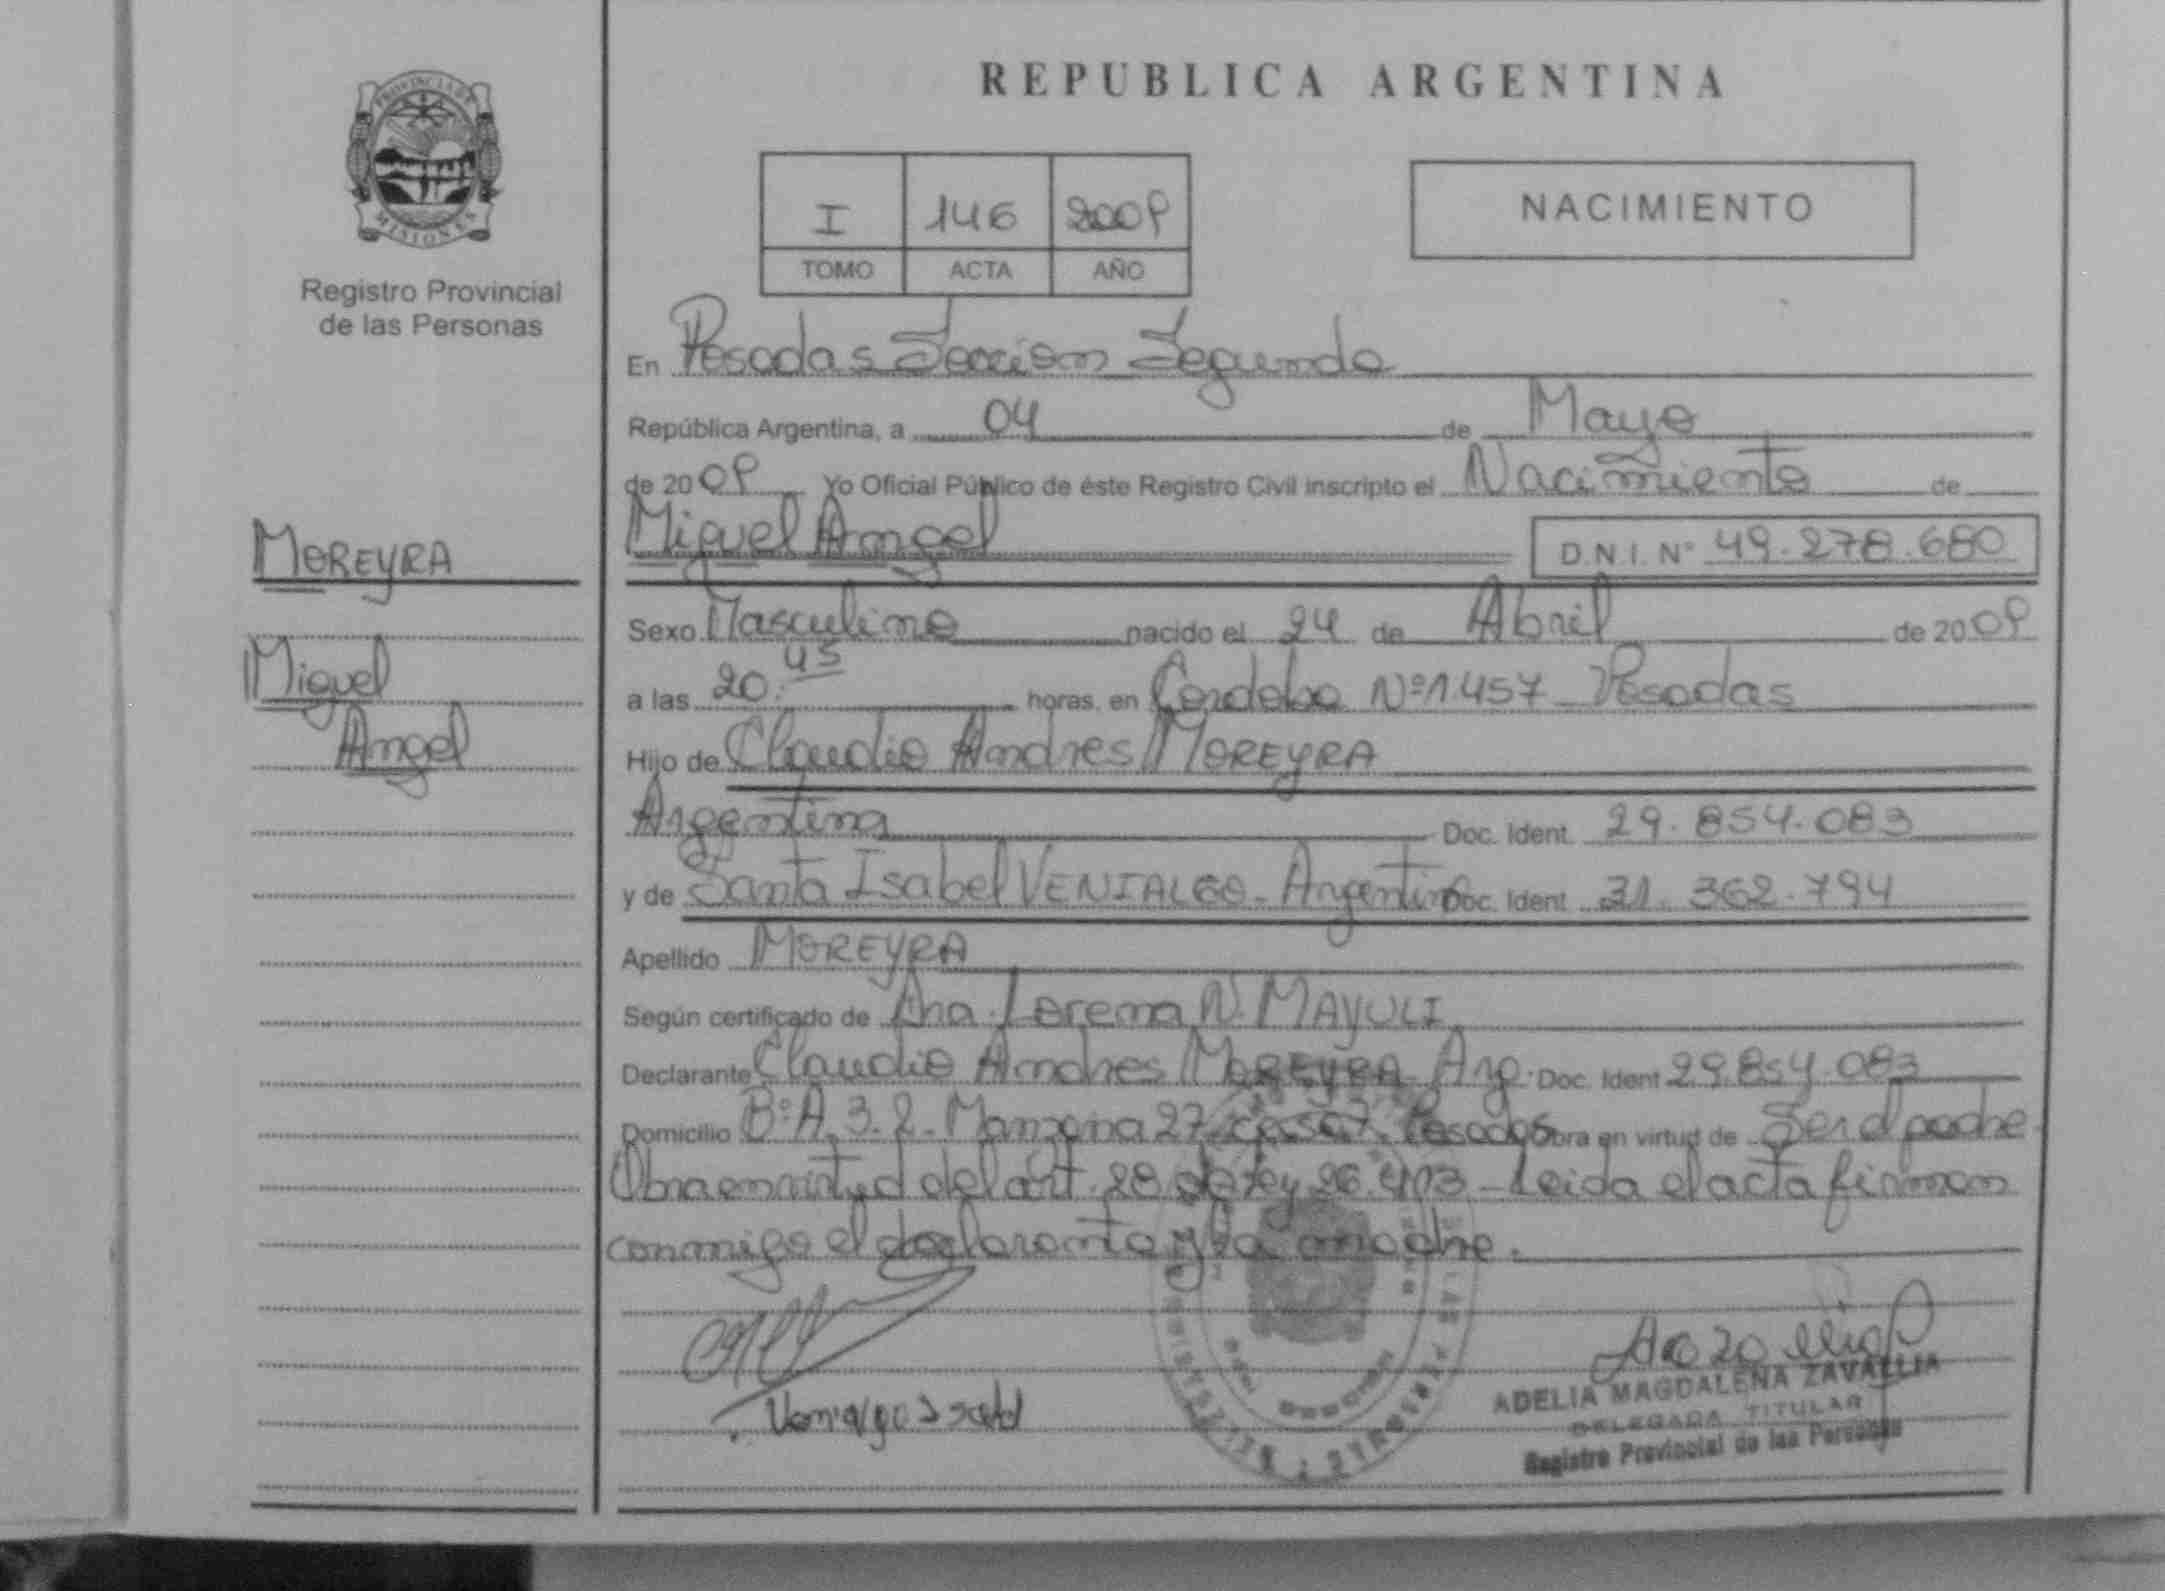 PROVINCIA DE
MISIONES
Registro Provincial
de las Personas
MOREYRA
Miguel
Angel
REPUBLICA ARGENTINA
I 146 2009
TOMO ACTA AÑO
NACIMIENTO
En Posadas Seccion Segunda
República Argentina, a 04 de Mayo
de 2009 Yo Oficial Público de éste Registro Civil inscripto el Nacimiento de
Miguel Angel D.N.I. Nº 49.278.680
Sexo Masculino nacido el 24 de Abril de 2009
a las 20:45 horas, en Cordoba Nº 1457 - Posadas
Hijo de Claudio Andres MOREYRA
Argentina Doc. Ident. 29.854.083
y de Santa Isabel VENIALGO - Argentina Doc. Ident. 31.362.794
Apellido MOREYRA
Según certificado de Ana Lorena N. MAYULI
Declarante Claudio Andres MOREYRA Arg. Doc. Ident 29.854.083
Domicilio Bº A.3.2. Manzana 27 casa 7. Posadas Obra en virtud de Ser el padre
Obra en virtud del art. 28 de ley 26.413 - Leida el acta firman
conmigo el declarante y la madre.
Venialgo Isabel
ADELIA MAGDALENA ZAVALLIA
DELEGADA TITULAR
Registro Provincial de las Personas